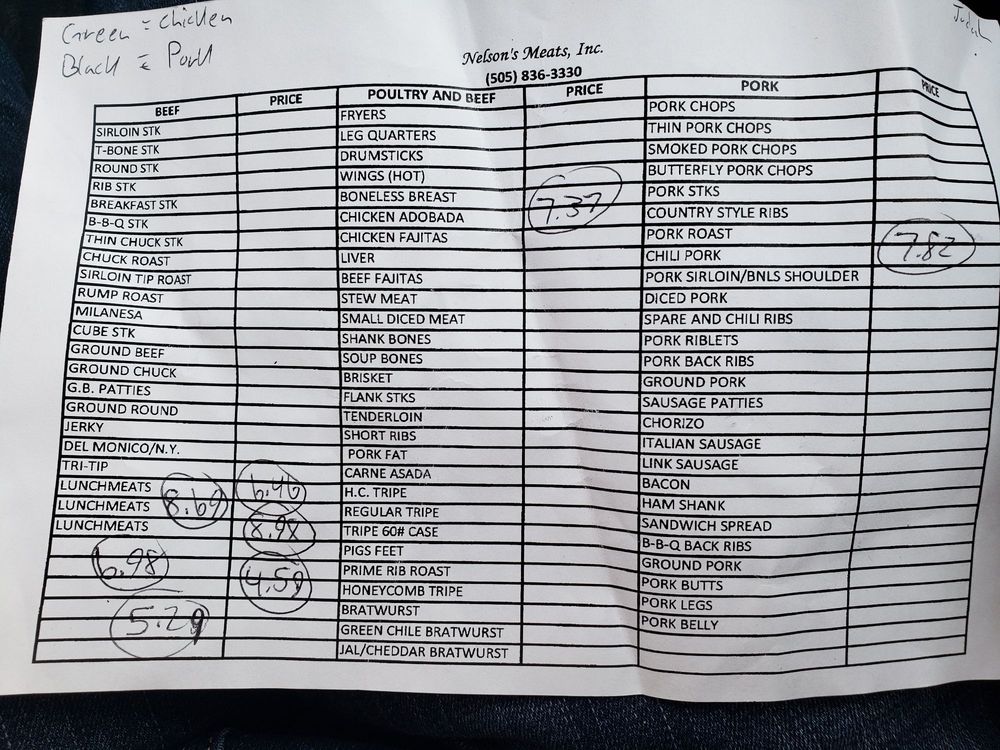 Green = chicken
Black = Pork
Nelson's Meats, Inc.
(505) 836-3330
BEEF
SIRLOIN STK
T-BONE STK
ROUND STK
RIB STK
BREAKFAST STK
B-B-Q STK
THIN CHUCK STK
CHUCK ROAST
SIRLOIN TIP ROAST
RUMP ROAST
MILANESA
CUBE STK
GROUND BEEF
GROUND CHUCK
G.B. PATTIES
GROUND ROUND
JERKY
DEL MONICO/N.Y.
TRI-TIP
LUNCHMEATS
LUNCHMEATS
LUNCHMEATS
8.69
6.98
5.29
PRICE
6.46
8.98
4.59
POULTRY AND BEEF
FRYERS
LEG QUARTERS
DRUMSTICKS
WINGS (HOT)
BONELESS BREAST
CHICKEN ADOBADA
CHICKEN FAJITAS
LIVER
BEEF FAJITAS
STEW MEAT
SMALL DICED MEAT
SHANK BONES
SOUP BONES
BRISKET
FLANK STKS
TENDERLOIN
SHORT RIBS
PORK FAT
CARNE ASADA
H.C. TRIPE
REGULAR TRIPE
TRIPE 60# CASE
PIGS FEET
PRIME RIB ROAST
HONEYCOMB TRIPE
BRATWURST
GREEN CHILE BRATWURST
JAL/CHEDDAR BRATWURST
PRICE
7.37
PORK
PORK CHOPS
THIN PORK CHOPS
SMOKED PORK CHOPS
BUTTERFLY PORK CHOPS
PORK STKS
COUNTRY STYLE RIBS
PORK ROAST
CHILI PORK
PORK SIRLOIN/BNLS SHOULDER
DICED PORK
SPARE AND CHILI RIBS
PORK RIBLETS
PORK BACK RIBS
GROUND PORK
SAUSAGE PATTIES
CHORIZO
ITALIAN SAUSAGE
LINK SAUSAGE
BACON
HAM SHANK
SANDWICH SPREAD
B-B-Q BACK RIBS
GROUND PORK
PORK BUTTS
PORK LEGS
PORK BELLY
PRICE
7.82